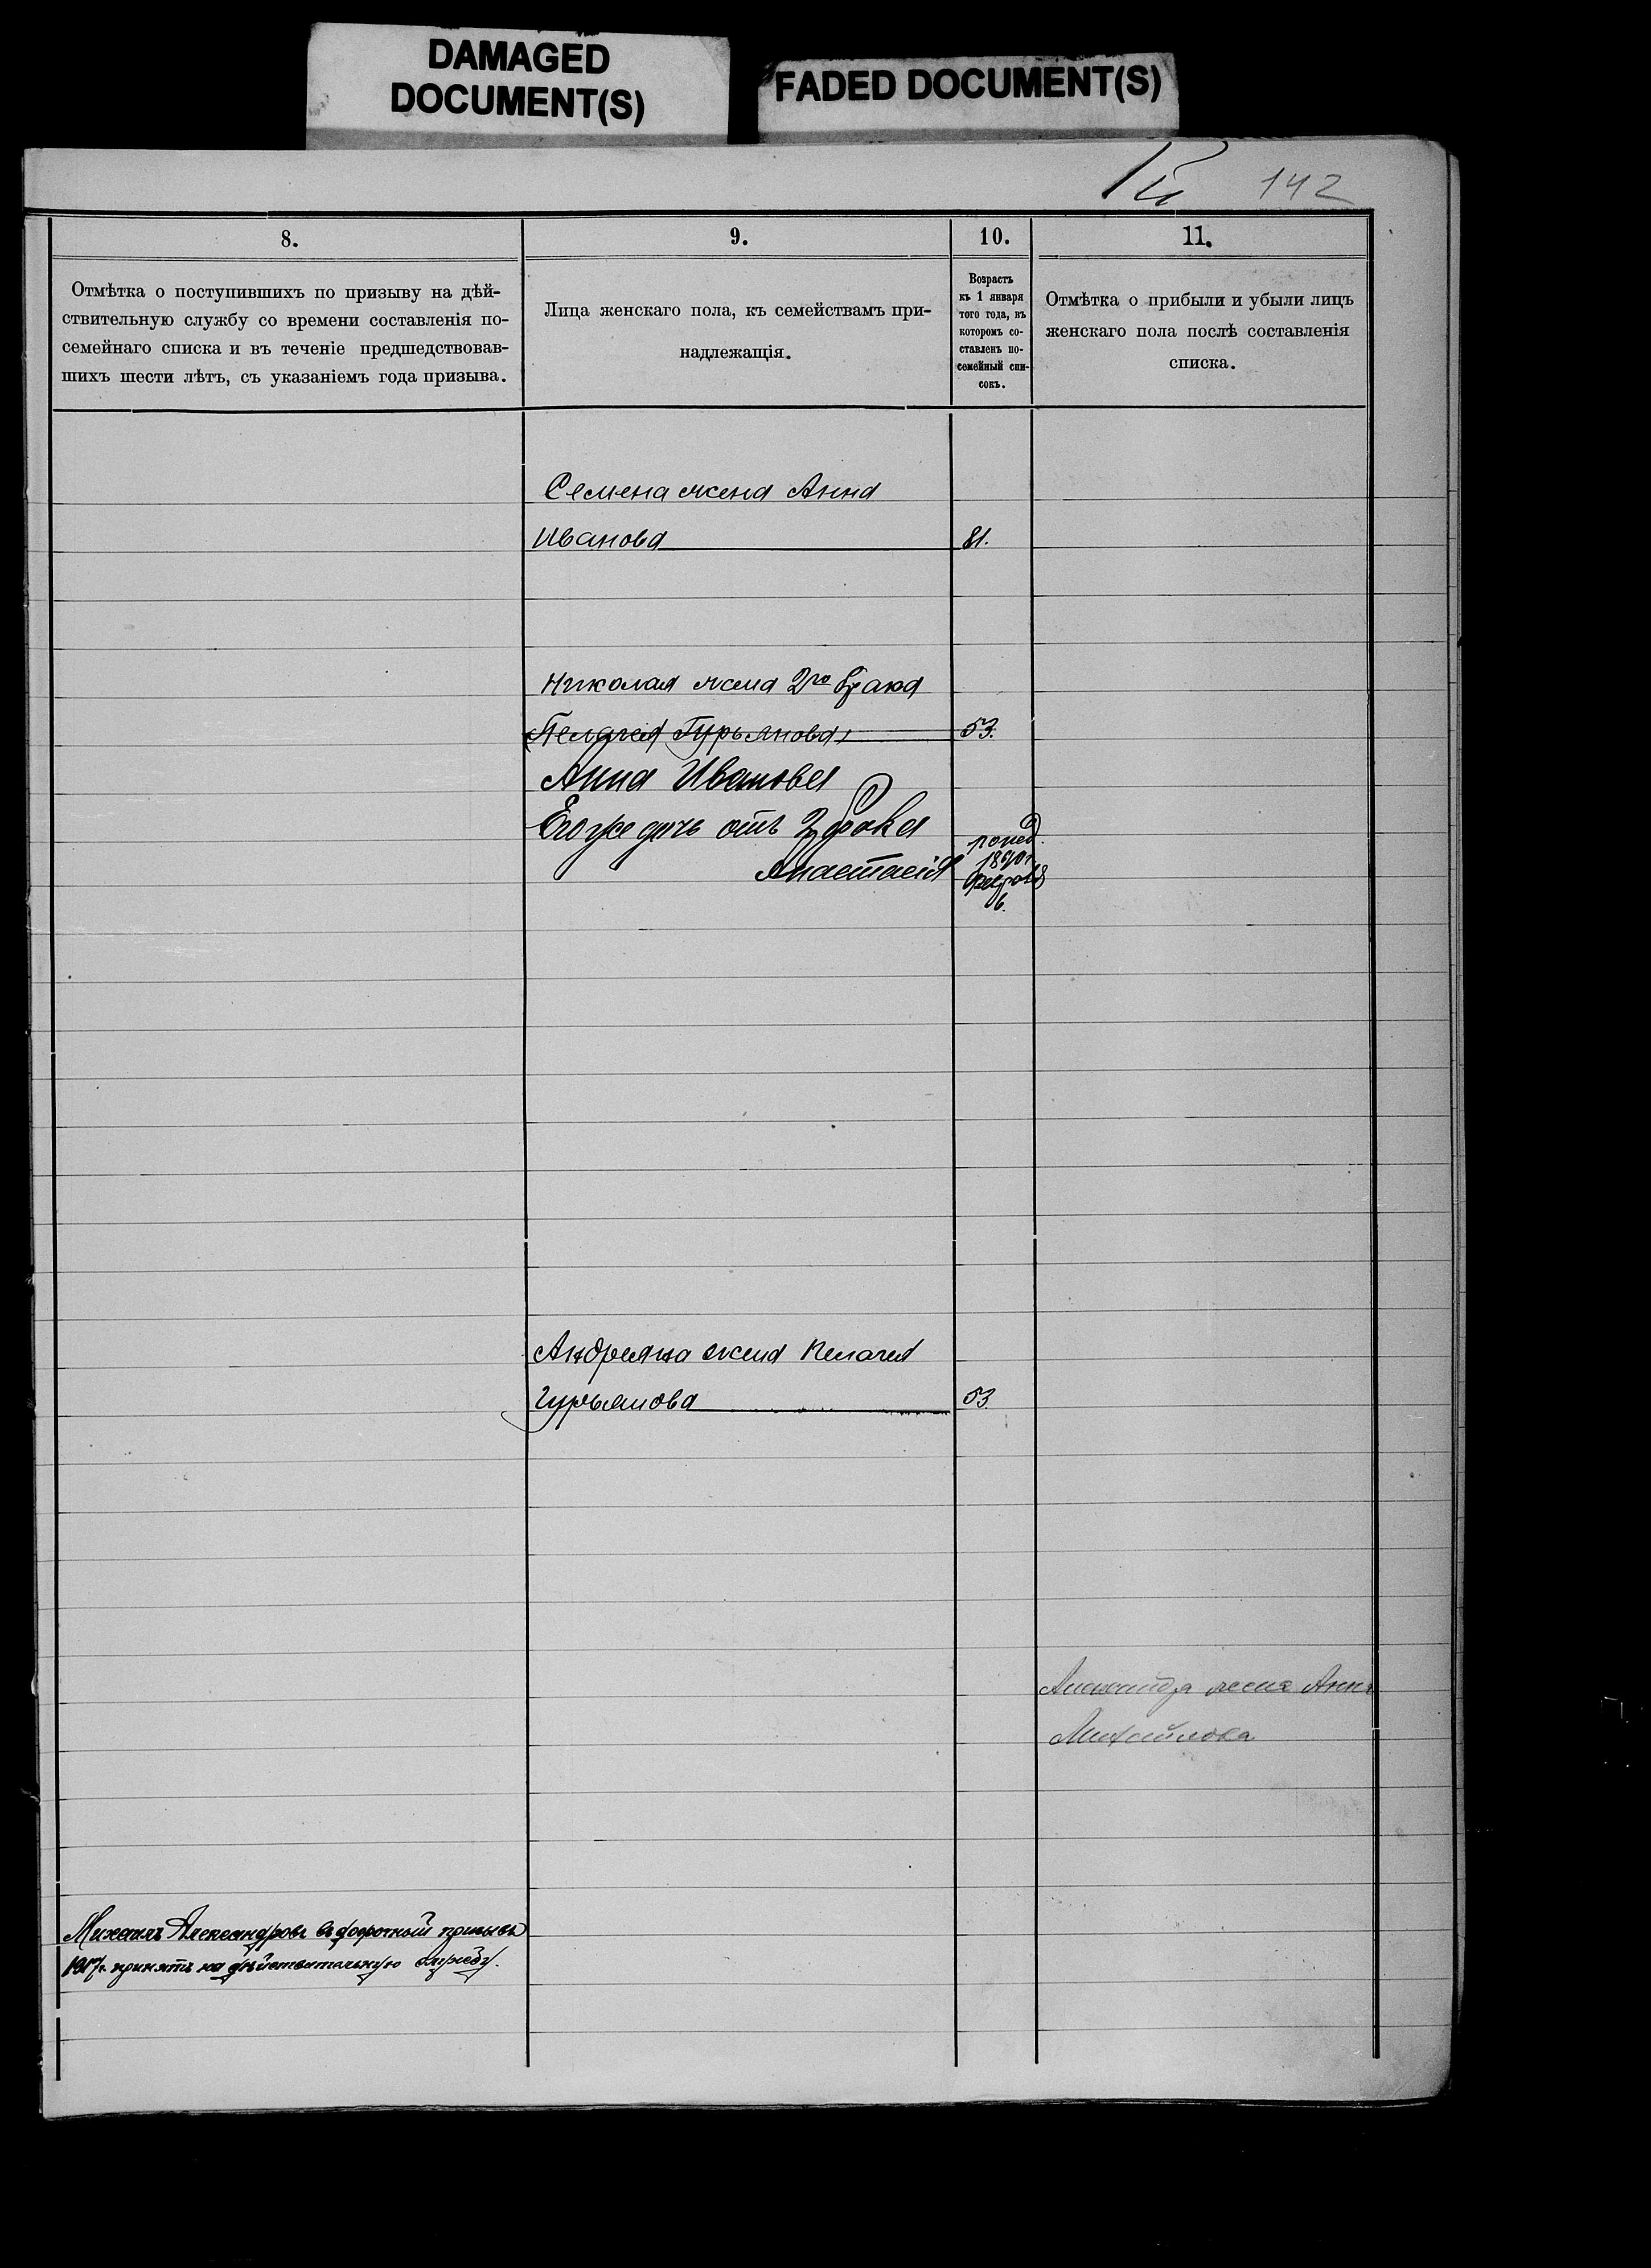 DAMAGED
DOCUMENT(S)
FADED DOCUMENT(S)
142
8.
Отмѣтка о поступившихъ по призыву на дѣй-
ствительную службу со времени составленія по-
семейнаго списка и въ теченіе предшедствовав-
шихъ шести лѣтъ, съ указаніемъ года призыва.
9.
Лица женскаго пола, къ семействамъ при-
надлежащія.
10.
Возрастъ
къ 1 января
того года, въ
которомъ со-
ставленъ по-
семейный спи-
сокъ.
11.
Отмѣтка о прибыли и убыли лицъ
женскаго пола послѣ составленія
списка.
Семена жена Анна
Иванова 81.
Николая жена 2го брака
Пелагея Гурьянова 53.
Анна Иванова
Его же дочь отъ 3 брака
Анастасія
1890 г.
6.
Андреяна жена Пелагея
Гурьянова 53
Александра жена Анна
Михайлова
Михаилъ Александровъ въ досрочный призывъ
1917 г. принятъ на дѣйствительную службу.